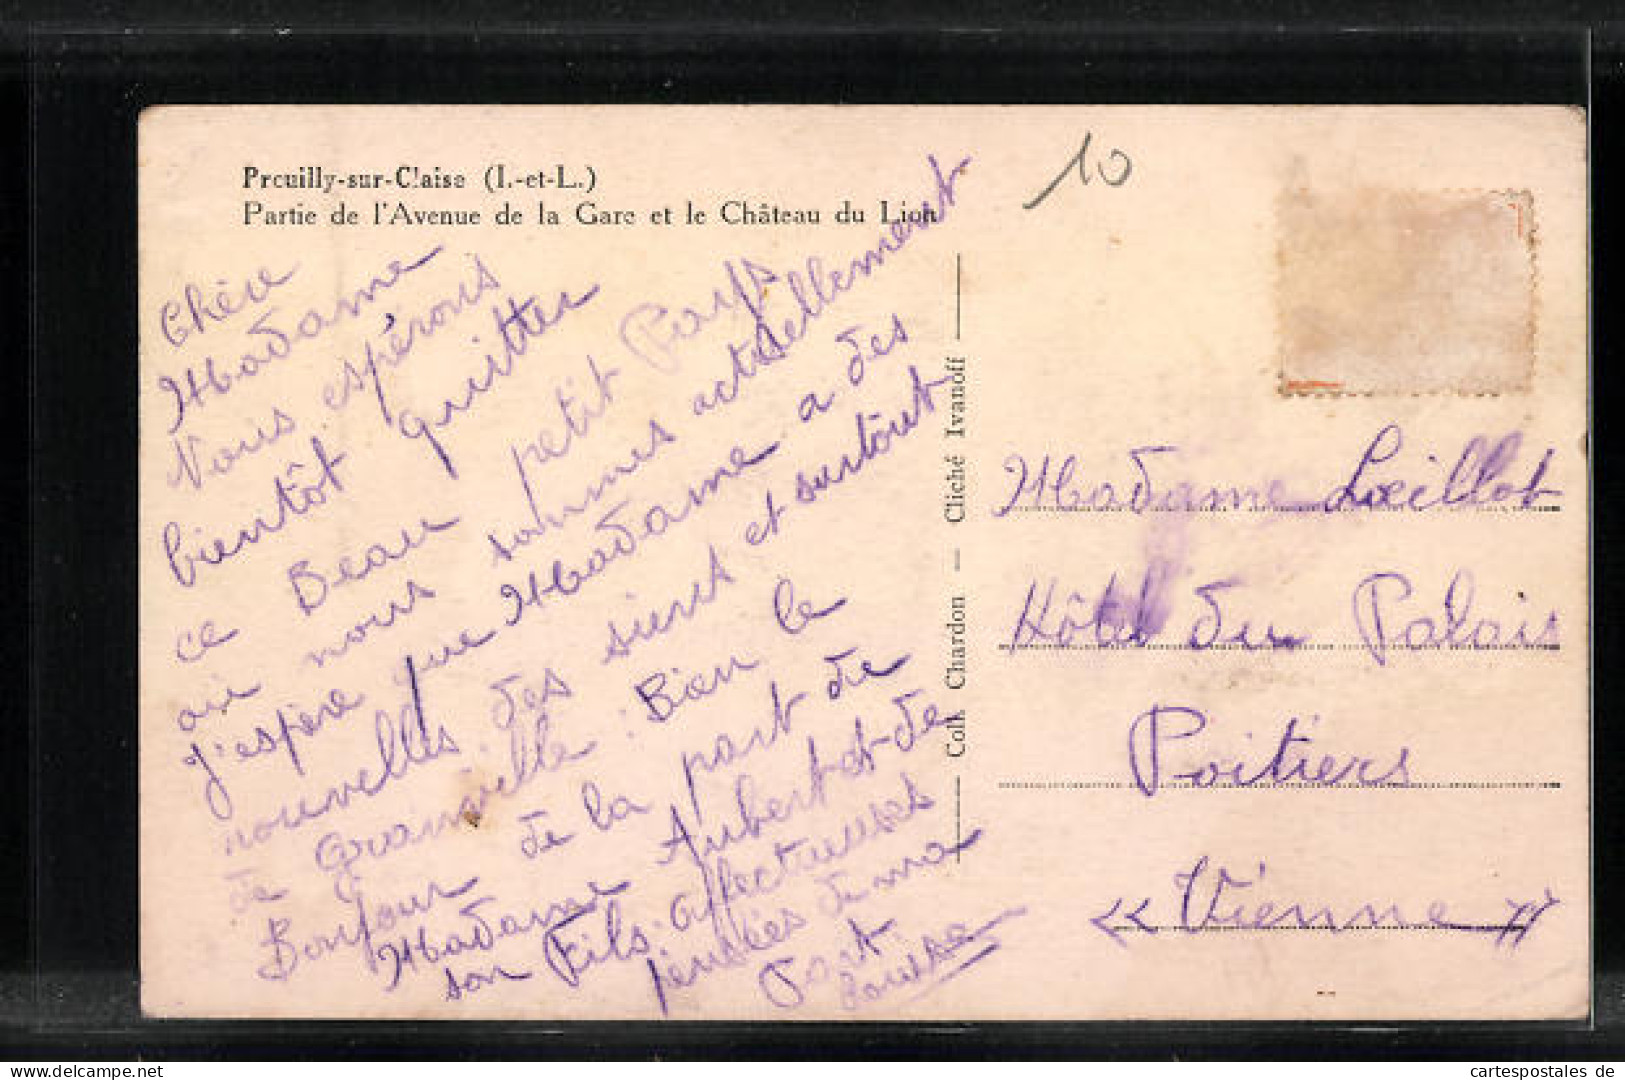 Preuilly-sur-Claise (I.-et-L.)
Partie de l'Avenue de la Gare et le Château du Lion
10
Chére
Madame
Nous espérons
bientôt quitter
ce Beau petit Pays
ou nous sommes actuellement
J'espère que Madame a des
nouvelles des siens et surtout
de Grainville : Bien le
Bonjour de la part de
Madame Aubert et de
son Fils. affectueuses
pensées de ma
Part
Louise
Coll. Chardon — Cliché Ivanoff
Madame Lœillot
Hôtel du Palais
Poitiers
« Viénne »
www.cartespostales.de